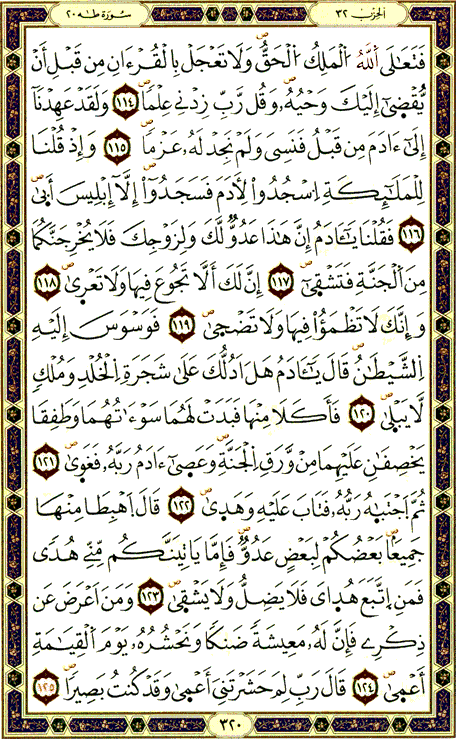 سُورَة طه ٢٠
الحِزْب ٣٢
فَتَعَٰلَى اَللَّهُ اُ۬لْمَلِكُ اُ۬لْحَقُّ وَلَا تَعْجَلْ بِالْقُرْءَانِ مِن قَبْلِ أَنْ
يُّقْضَىٰٓ إِلَيْكَ وَحْيُهُۥ وَقُل رَّبِّ زِدْنِے عِلْماٗ ١١٤ وَلَقَدْ عَهِدْنَآ
إِلَىٰٓ ءَادَمَ مِن قَبْلُ فَنَسِىَ وَلَمْ نَجِدْ لَهُۥ عَزْماٗ ١١٥ وَإِذْ قُلْنَا
لِلْمَلَٰٓئِكَةِ اِ۟سْجُدُواْ لِأَدَمَ فَسَجَدُوٓاْ إِلَّآ إِبْلِيسَ أَبَىٰ
١١٦ فَقُلْنَا يَٰٓـَٔادَمُ إِنَّ هَٰذَا عَدُوّٞ لَّكَ وَلِزَوْجِكَ فَلَا يُخْرِجَنَّكُمَا
مِنَ اَ۬لْجَنَّةِ فَتَشْقَىٰٓ ١١٧ إِنَّ لَكَ أَلَّا تَجُوعَ فِيهَا وَلَا تَعْرَىٰ ١١٨
وَإِنَّكَ لَا تَظْمَؤُاْ فِيهَا وَلَا تَضْحَىٰ ١١٩ فَوَسْوَسَ إِلَيْهِ
اِ۬لشَّيْطَٰنُ قَالَ يَٰٓـَٔادَمُ هَلَ اَدُلُّكَ عَلَىٰ شَجَرَةِ اِ۬لْخُلْدِ وَمُلْكٖ
لَّا يَبْلَىٰ ١٢٠ فَأَكَلَا مِنْهَا فَبَدَتْ لَهُمَا سَوْءَٰتُهُمَا وَطَفِقَا
يَخْصِفَٰنِ عَلَيْهِمَا مِنْ وَّرَقِ اِ۬لْجَنَّةِ وَعَصَىٰٓ ءَادَمُ رَبَّهُۥ فَغَوَىٰ ١٢١
ثُمَّ اَ۪جْتَبَٰهُ رَبُّهُۥ فَتَابَ عَلَيْهِ وَهَدَىٰ ١٢٢ قَالَ اَ۪هْبِطَا مِنْهَا
جَمِيعاَۢ بَعْضُكُمْ لِبَعْضٍ عَدُوّٞ فَإِمَّا يَاتِيَنَّكُم مِّنِّے هُدٗى
فَمَنِ اِ۪تَّبَعَ هُدَاىَ فَلَا يَضِلُّ وَلَا يَشْقَىٰ ١٢٣ وَمَنَ اَعْرَضَ عَن
ذِكْرِے فَإِنَّ لَهُۥ مَعِيشَةٗ ضَنكاٗ وَنَحْشُرُهُۥ يَوْمَ اَ۬لْقِيَٰمَةِ
أَعْمَىٰ ١٢٤ قَالَ رَبِّ لِمَ حَشَرْتَنِىٓ أَعْمَىٰ وَقَدْ كُنتُ بَصِيراٗ ١٢٥
٣٢٠